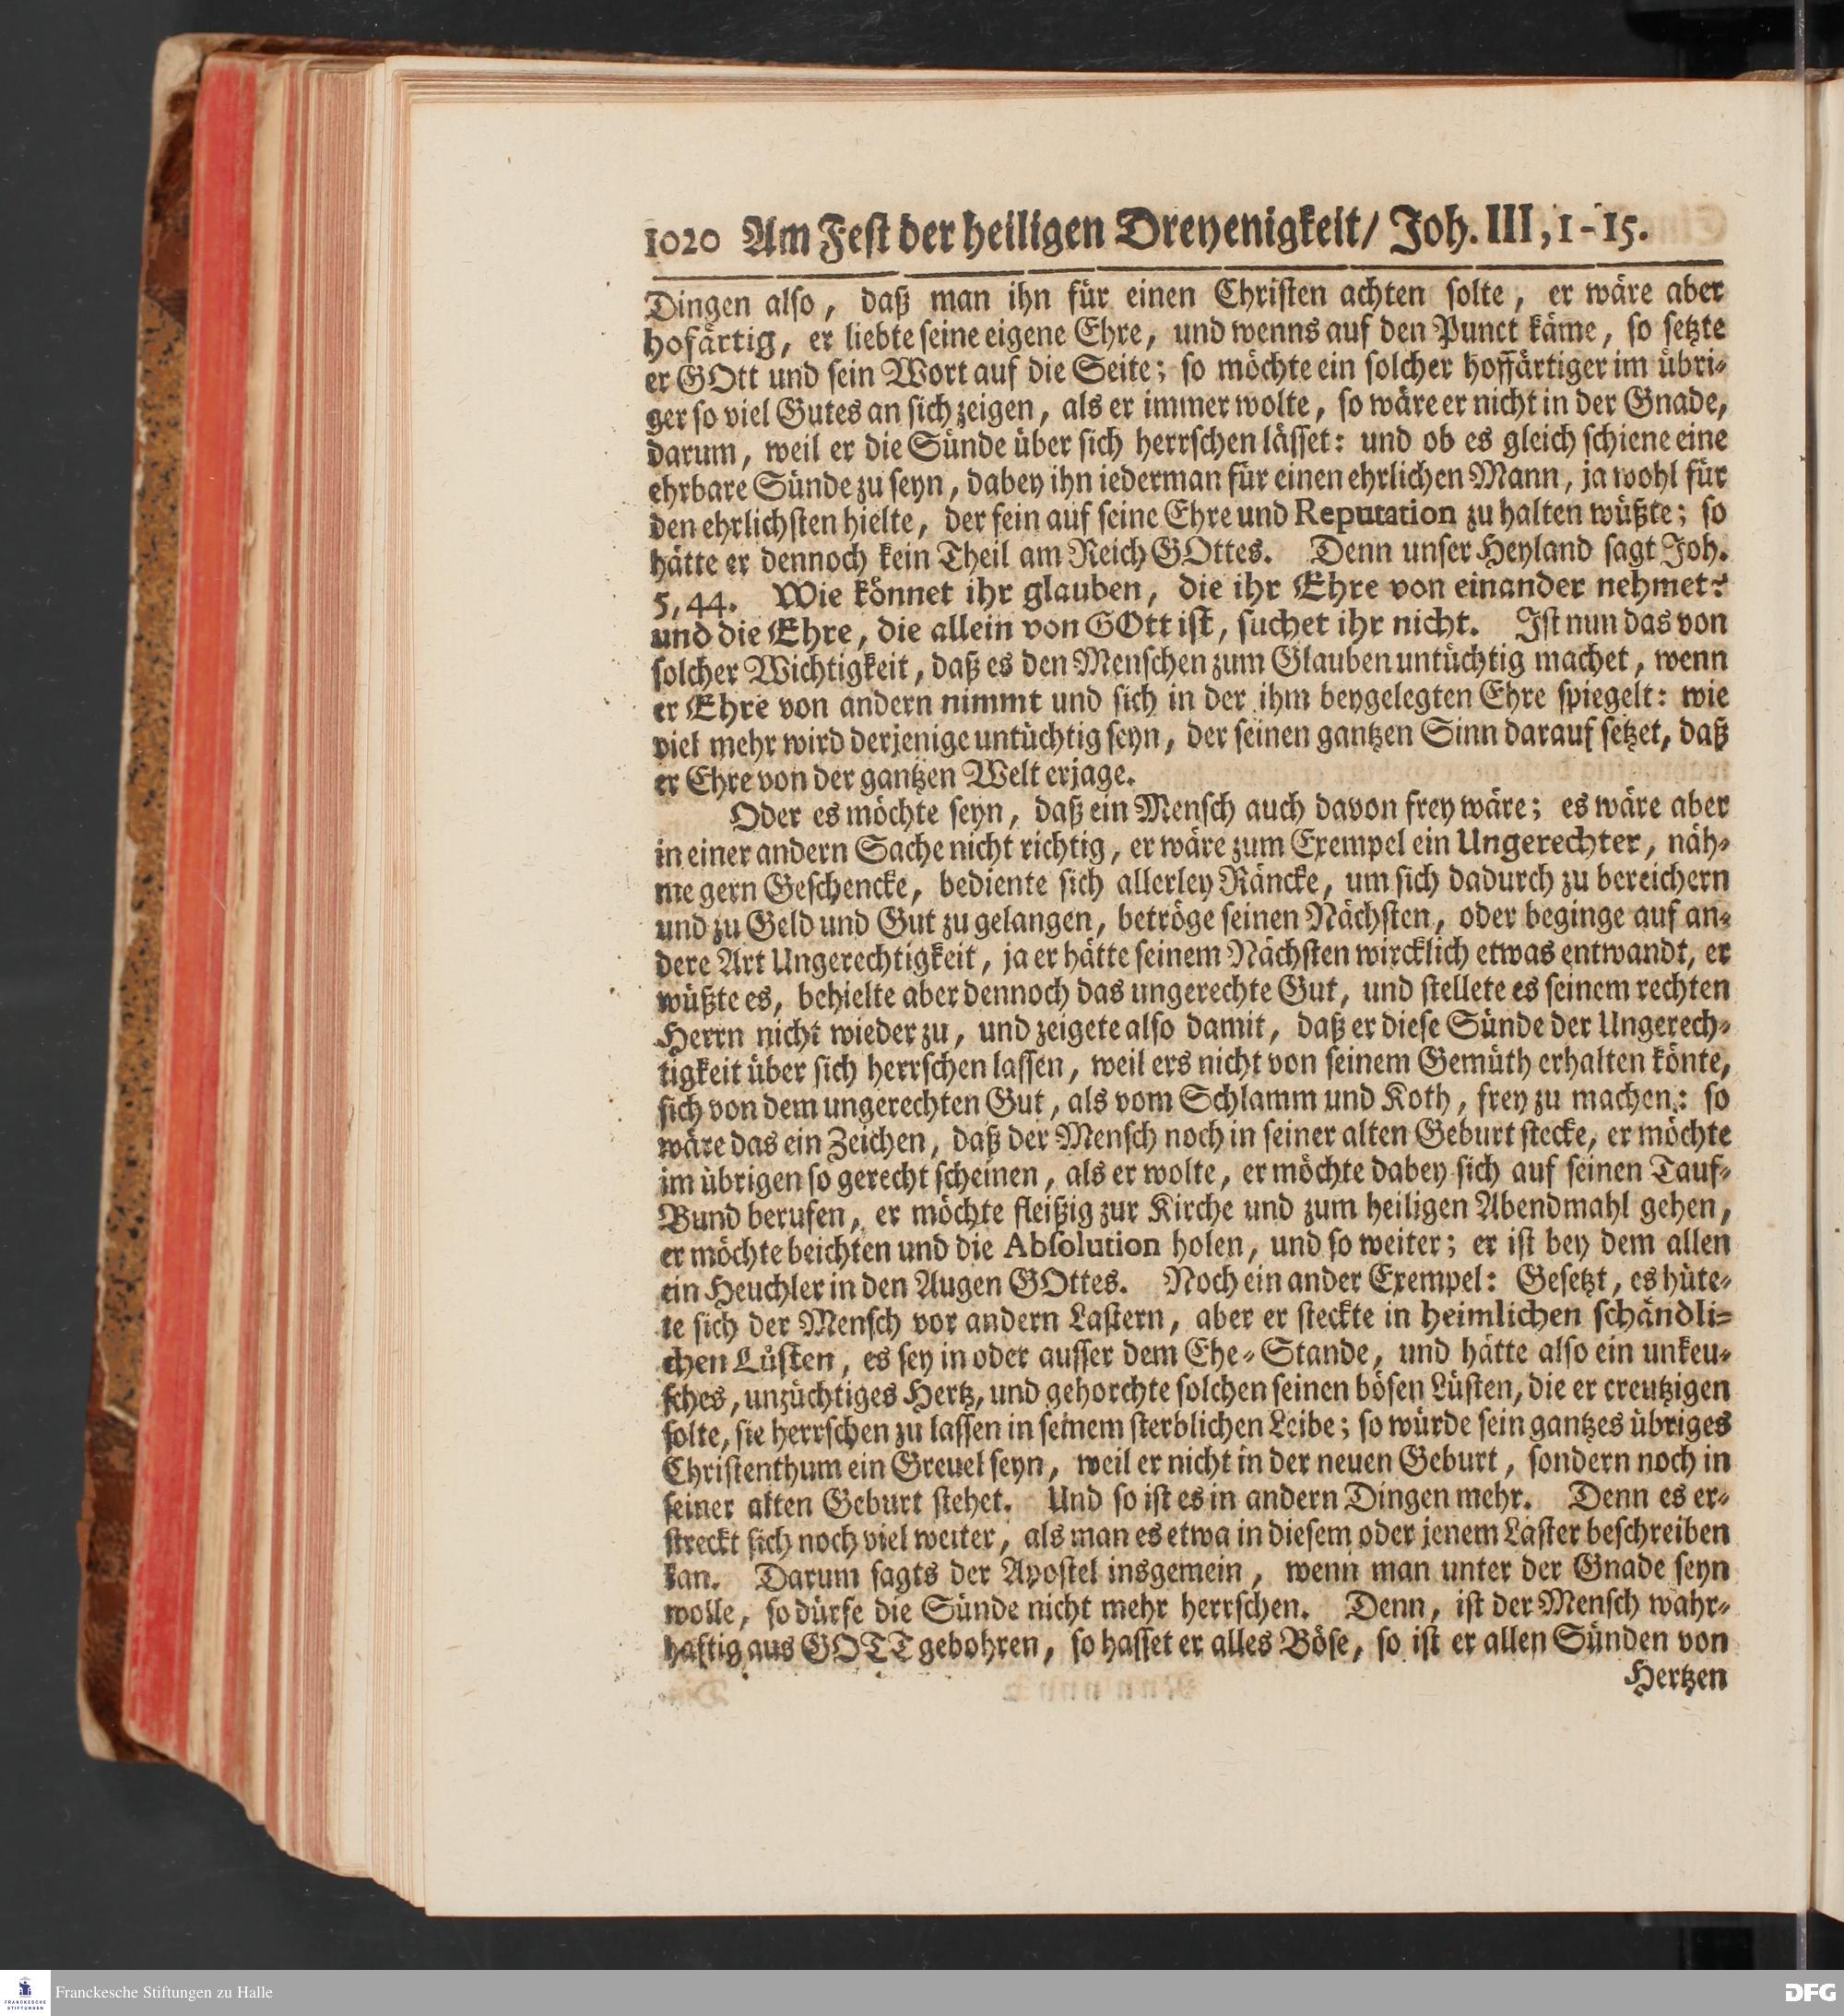 1020 Am Fest der heiligen Dreyenigkeit/ Joh. III, 1-15.
Dingen also, daß man ihn für einen Christen achten solte, er wäre aber
hofärtig, er liebte seine eigene Ehre, und wenns auf den Punct käme, so setzte
er GOtt und sein Wort auf die Seite; so möchte ein solcher hoffärtiger im übri-
ger so viel Gutes an sich zeigen, als er immer wolte, so wäre er nicht in der Gnade,
darum, weil er die Sünde über sich herrschen lässet: und ob es gleich schiene eine
ehrbare Sünde zu seyn, dabey ihn iederman für einen ehrlichen Mann, ja wohl für
den ehrlichsten hielte, der fein auf seine Ehre und Reputation zu halten wüßte; so
hätte er dennoch kein Theil am Reich GOttes. Denn unser Heyland sagt Joh.
5, 44. Wie könnet ihr glauben, die ihr Ehre von einander nehmet?
und die Ehre, die allein von GOtt ist, suchet ihr nicht. Ist nun das von
solcher Wichtigkeit, daß es den Menschen zum Glauben untüchtig machet, wenn
er Ehre von andern nimmt und sich in der ihm beygelegten Ehre spiegelt: wie
viel mehr wird derjenige untüchtig seyn, der seinen gantzen Sinn darauf setzet, daß
er Ehre von der gantzen Welt erjage.
Oder es möchte seyn, daß ein Mensch auch davon frey wäre; es wäre aber
in einer andern Sache nicht richtig, er wäre zum Exempel ein Ungerechter, näh-
me gern Geschencke, bediente sich allerley Räncke, um sich dadurch zu bereichern
und zu Geld und Gut zu gelangen, betröge seinen Nächsten, oder beginge auf an-
dere Art Ungerechtigkeit, ja er hätte seinem Nächsten wircklich etwas entwandt, er
wüßte es, behielte aber dennoch das ungerechte Gut, und stellete es seinem rechten
Herrn nicht wieder zu, und zeigete also damit, daß er diese Sünde der Ungerech-
tigkeit über sich herrschen lassen, weil ers nicht von seinem Gemüth erhalten könte,
sich von dem ungerechten Gut, als vom Schlamm und Koth, frey zu machen: so
wäre das ein Zeichen, daß der Mensch noch in seiner alten Geburt stecke, er möchte
im übrigen so gerecht scheinen, als er wolte, er möchte dabey sich auf seinen Tauf-
Bund berufen, er möchte fleißig zur Kirche und zum heiligen Abendmahl gehen,
er möchte beichten und die Absolution holen, und so weiter; er ist bey dem allen
ein Heuchler in den Augen GOttes. Noch ein ander Exempel: Gesetzt, es hüte-
te sich der Mensch vor andern Lastern, aber er steckte in heimlichen schändli-
chen Lüsten, es sey in oder ausser dem Ehe-Stande, und hätte also ein unkeu-
sches, unzüchtiges Hertz, und gehorchte solchen seinen bösen Lüsten, die er creutzigen
solte, sie herrschen zu lassen in seinem sterblichen Leibe; so würde sein gantzes übriges
Christenthum ein Greuel seyn, weil er nicht in der neuen Geburt, sondern noch in
seiner alten Geburt stehet. Und so ist es in andern Dingen mehr. Denn es er-
streckt sich noch viel weiter, als man es etwa in diesem oder jenem Laster beschreiben
kan. Darum sagts der Apostel insgemein, wenn man unter der Gnade seyn
wolle, so dürfe die Sünde nicht mehr herrschen. Denn, ist der Mensch wahr-
haftig aus GOTT gebohren, so hasset er alles Böse, so ist er allen Sünden von
Hertzen
FRANCKESCHE
STIFTUNGEN
Franckesche Stiftungen zu Halle
DFG